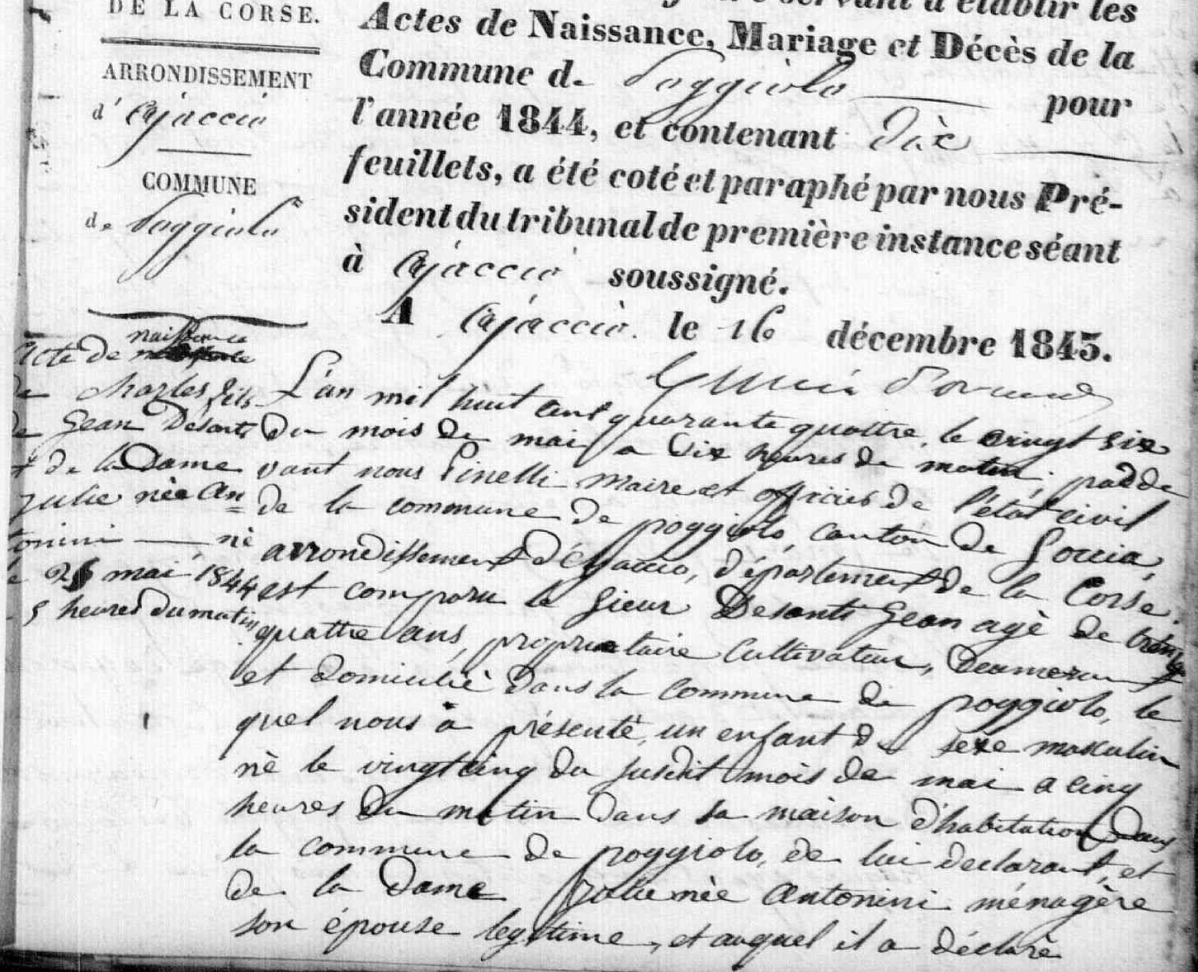 DE LA CORSE.
ARRONDISSEMENT
d'Ajaccio
COMMUNE
de Poggiolo
servant à établir les
Actes de Naissance, Mariage et Décès de la
Commune de Poggiolo pour
l'année 1844, et contenant Dix
feuillets, a été coté et paraphé par nous Pré-
sident du tribunal de première instance séant
à Ajaccio soussigné.
A Ajaccio le 16 décembre 1843.
naissance
Acte de
de Charles fils
de Gean Desanti
et de la Dame
Julie née An=
tonini — né
le 25 mai 1844
5 heures du matin
L'an mil huit cent quarante quattre, le vingt six
du mois de mai a dix heures du matin; pardde
vant nous Pinelli maire et officier de l'état civil
de la commune de poggiolo, canton de Soccia,
arrondissement d'Ajaccio, département de la Corse.
est comparu le Sieur Desanti Gean agè de trente
quattre ans, proprietaire Cultivateur, Demeurant
et domicilié dans la commune de poggiolo, le
quel nous à présenté, un enfant du sexe masculin
nè le vingtcinq du susdit mois de mai a cinq
heures du matin dans sa maison d'habitation dans
la commune de poggiolo, de lui declarant, et
de la Dame Julie nèe Antonini ménagère
son épouse legitime, et auquel il a déclarè